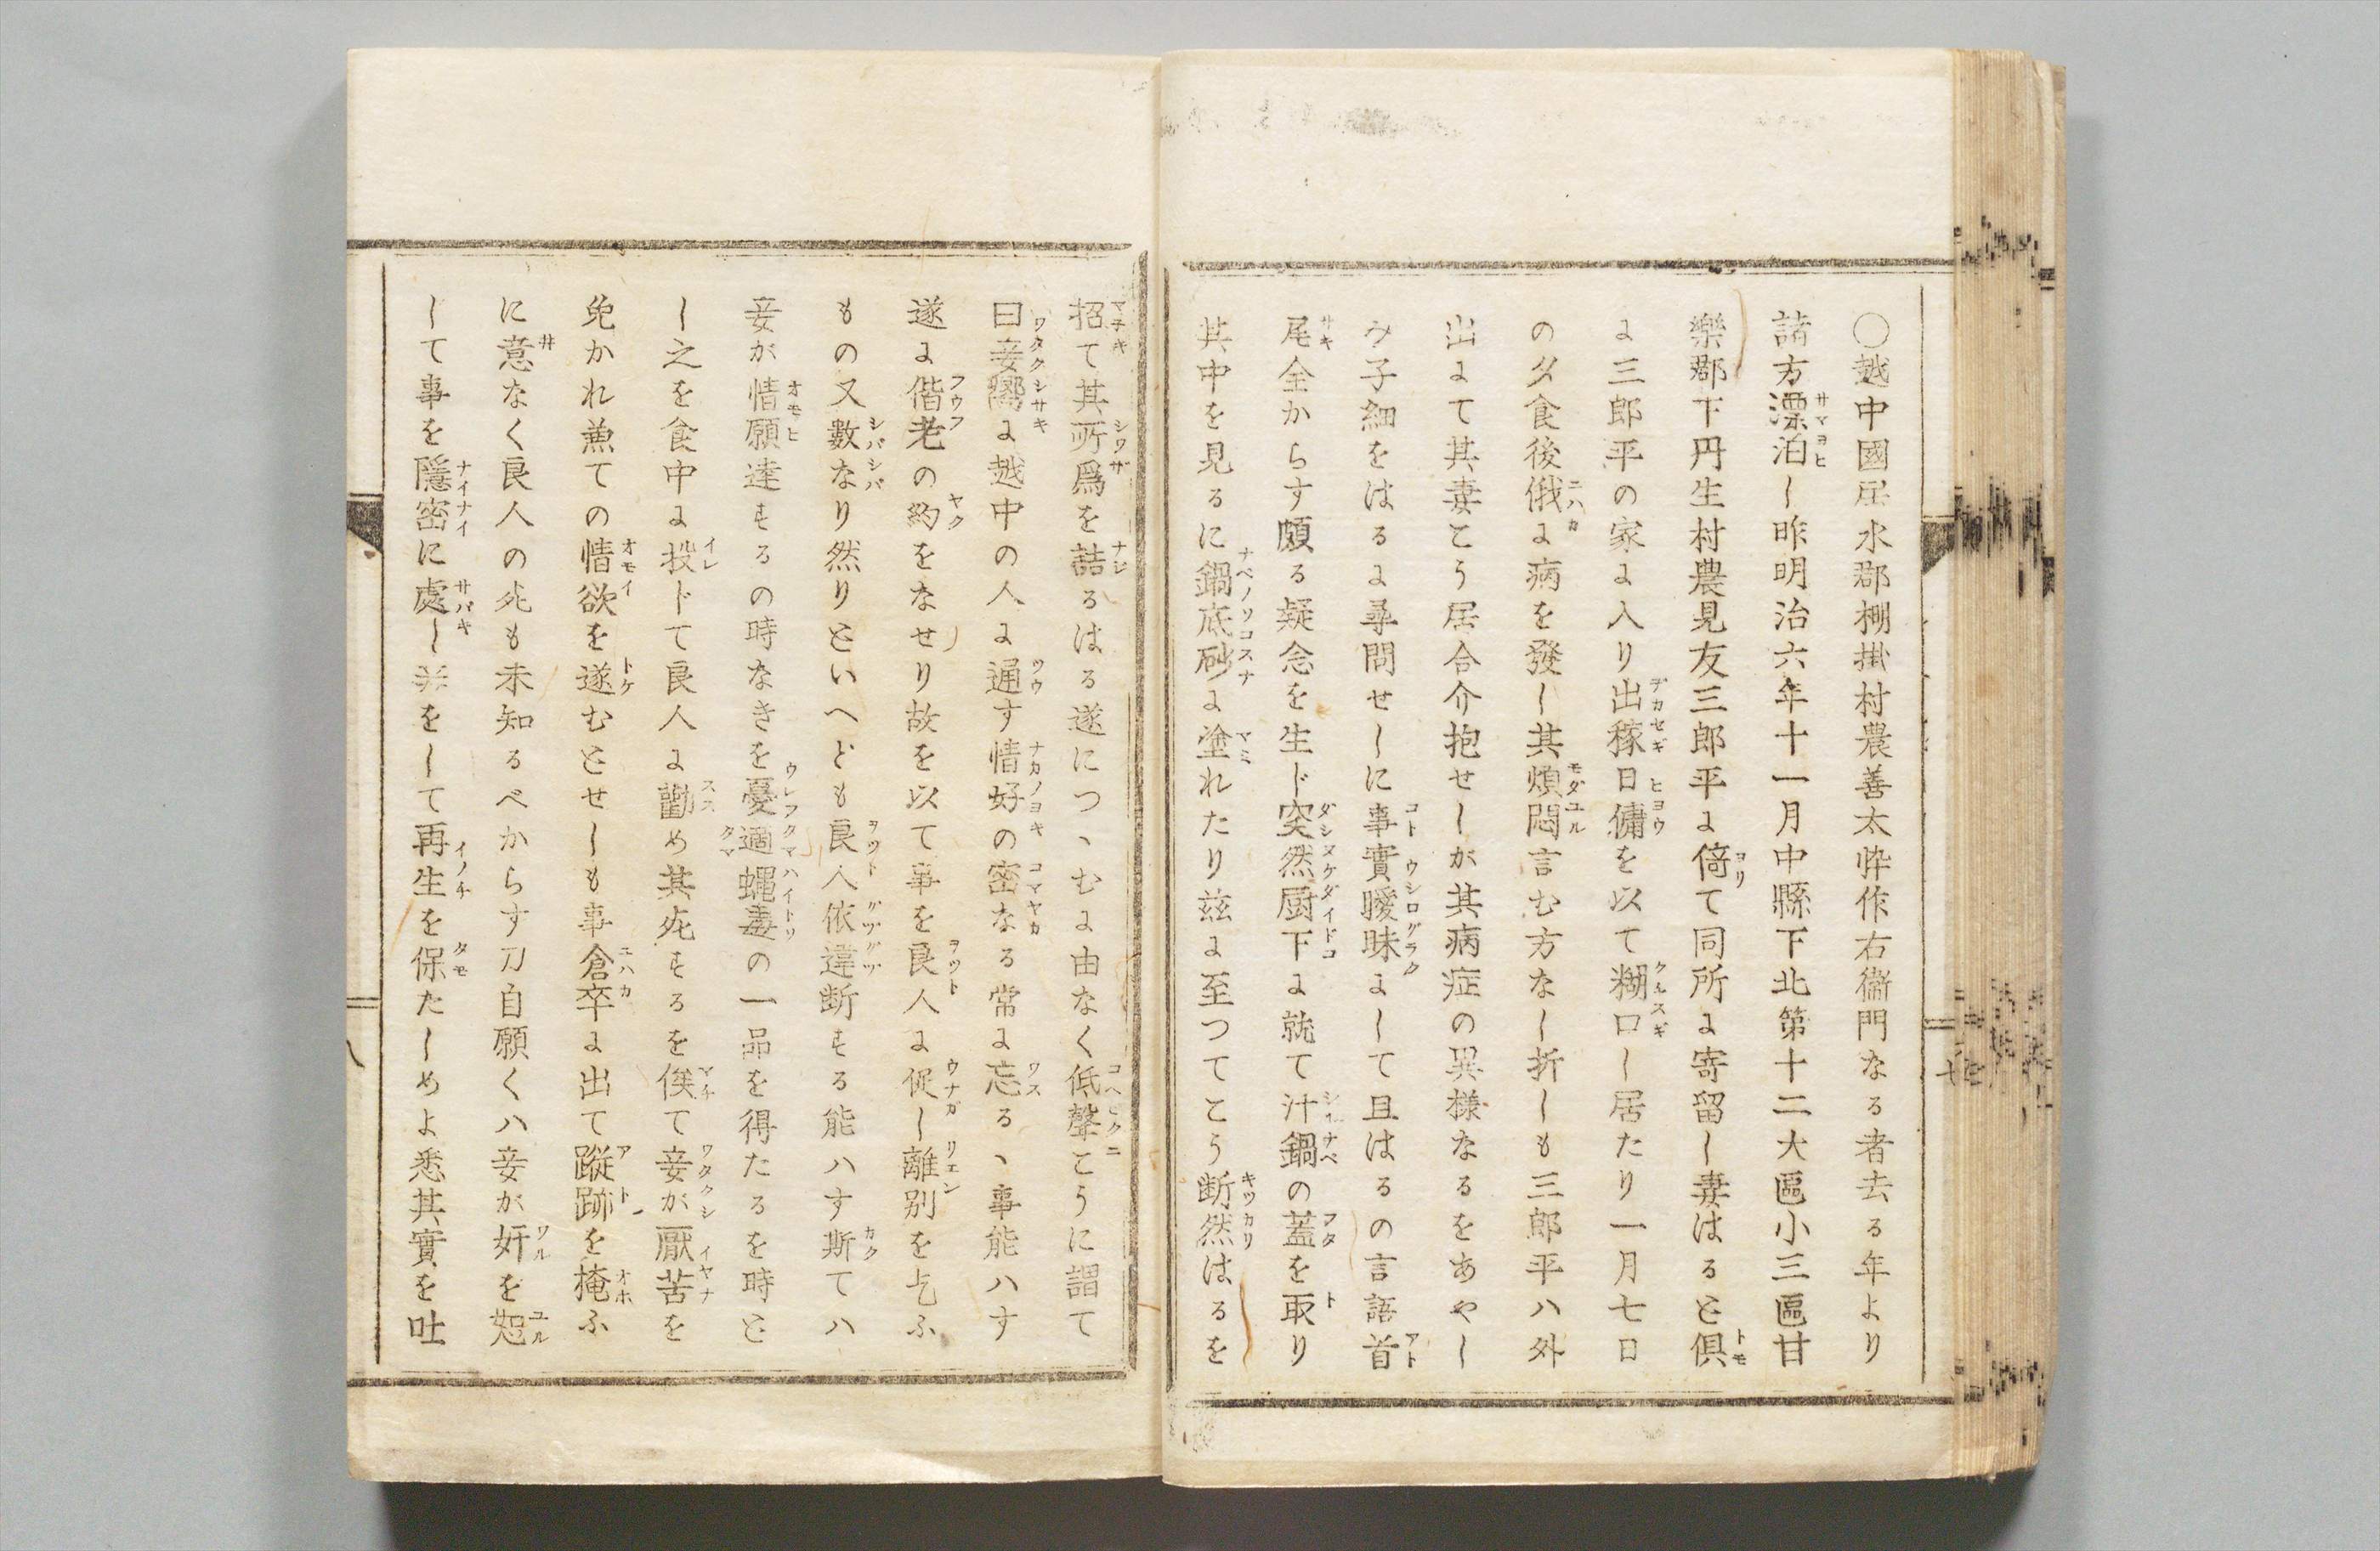 〇越中國居水郡棚掛村農善太悴作右衞門なる者去る年より
諸方漂泊し昨明治六年十一月中縣下北第十二大區小三區甘
樂郡下丹生村農見友三郎平に倚て同所に寄留し妻はると俱
に三郎平の家に入り出稼日傭を以て糊口し居たり一月七日
の夕食後俄に病を發し其煩悶言む方なし折しも三郎平ハ外
出にて其妻こう居合介抱せしが其病症の異様なるをあやし
み子細をはるに尋問せしに事實曖昧にして且はるの言語首
尾全からす頗る疑念を生ド突然厨下に就て汁鍋の蓋を取り
其中を見るに鍋底砂に塗れたり茲に至つてこう断然はるを
招て其所爲を詰るはる遂につヽむに由なく低聲こうに謂て
曰妾嚮に越中の人に通す情好の密なる常に忘るヽ事能ハす
遂に偕老の約をなせり故を以て事を良人に促し離別を乞ふ
もの又數なり然りといへども良人依違断する能ハす斯てハ
妾が情願達するの時なきを憂適蝿毒の一品を得たるを時と
し之を食中に投ドて良人に勸め其死するを俟て妾が厭苦を
免かれ兼ての情欲を遂むとせしも事倉卒に出て蹤跡を掩ふ
に意なく良人の死も未知るべからす刀自願くハ妾が奸を恕
して事を隱密に處し妾をして再生を保たしめよ悉其實を吐
七
八